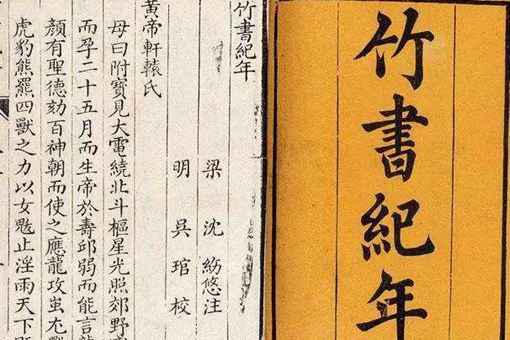 竹書紀年
竹書紀年
梁 沈 注
明 吳琯校
黃帝軒轅氏
母曰附寶見大電繞北斗樞星光照郊野感
而孕二十五月而生帝於壽邱弱而能言龍
顏有聖德劾百神朝而使之應龍攻蚩尤戰
虎豹熊羆四獸之力以女魃止淫雨天下既